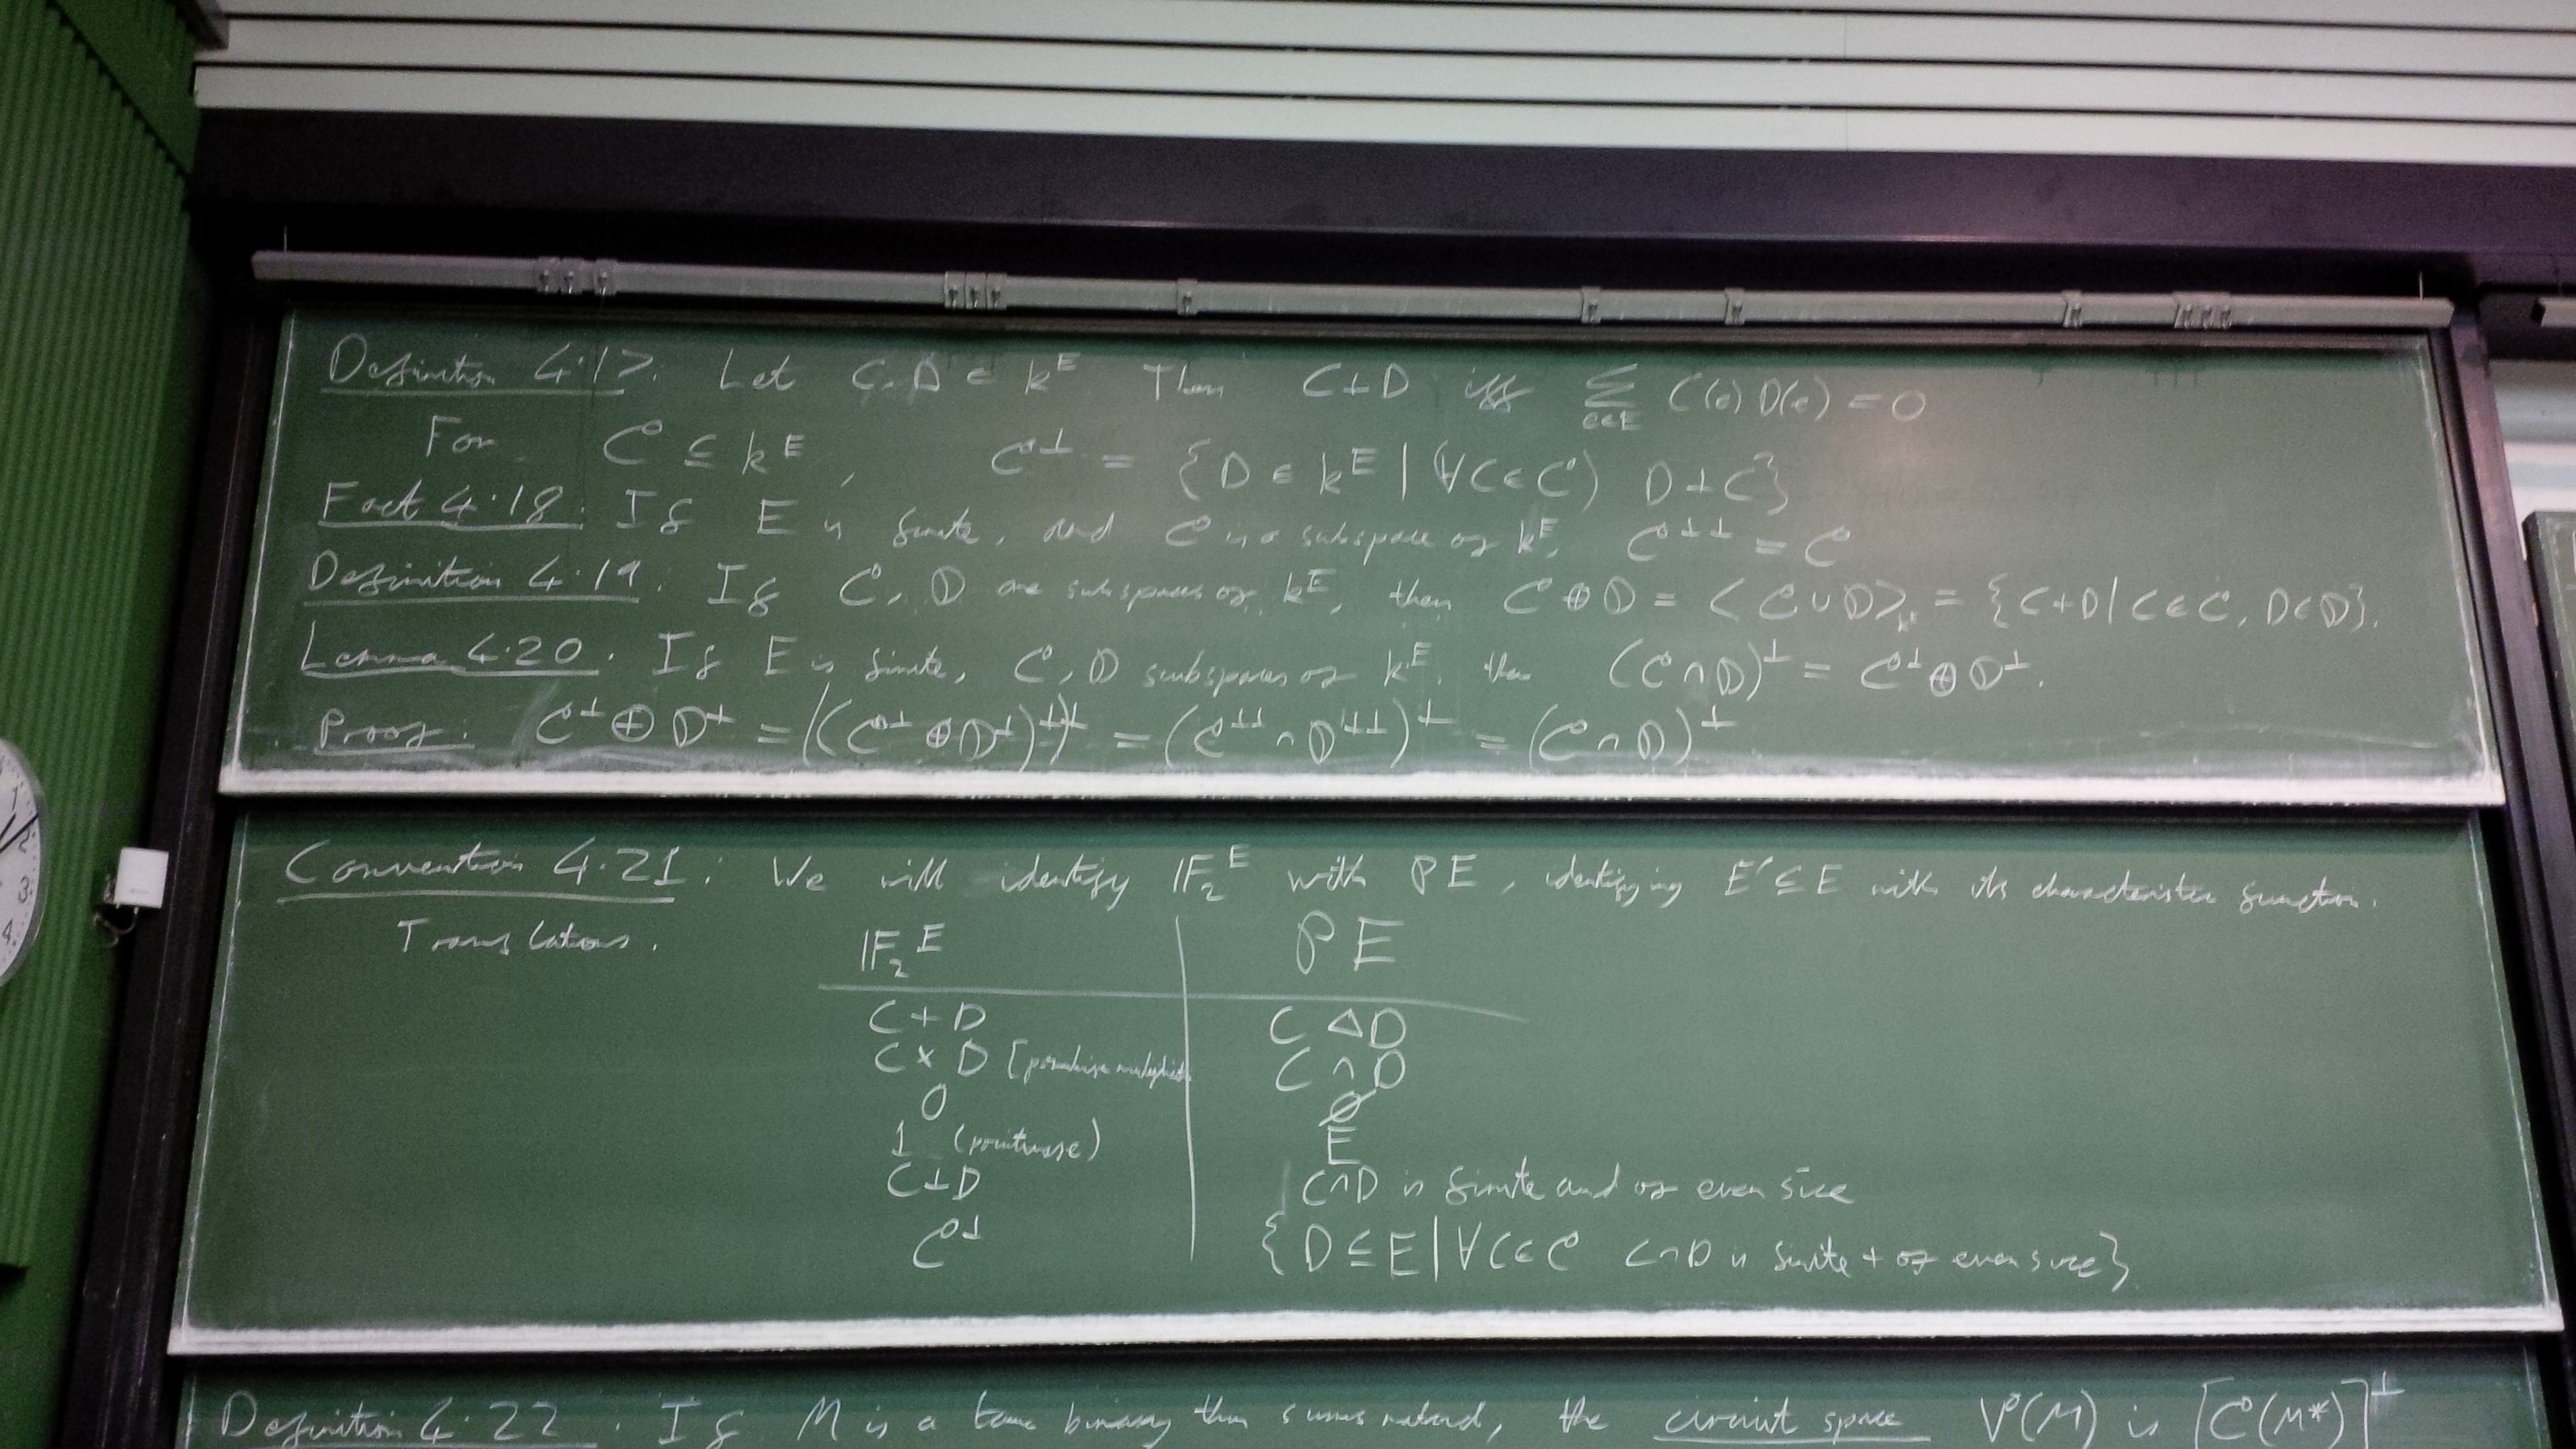 Definition 4.17. Let C, D ∈ k^E Then C⊥D iff ∑_{e∈E} C(e) D(e) = 0
For 𝒞 ⊆ k^E, 𝒞^⊥ = {D ∈ k^E | (∀C∈𝒞) D⊥C}
Fact 4.18. If E is finite, and 𝒞 is a subspace of k^E, 𝒞^⊥⊥ = 𝒞
Definition 4.19. If 𝒞, 𝔻 are subspaces of k^E, then 𝒞 ⊕ 𝔻 = <𝒞 ∪ 𝔻>_k = {C+D | C∈𝒞, D∈𝔻}.
Lemma 4.20. If E is finite, 𝒞, 𝔻 subspaces of k^E, then (𝒞 ∩ 𝔻)^⊥ = 𝒞^⊥ ⊕ 𝔻^⊥.
Proof: 𝒞^⊥ ⊕ 𝔻^⊥ = ((𝒞^⊥ ⊕ 𝔻^⊥)^⊥)^⊥ = (𝒞^⊥⊥ ∩ 𝔻^⊥⊥)^⊥ = (𝒞 ∩ 𝔻)^⊥
Convention 4.21: We will identify 𝔽_2^E with 𝒫E, identifying E' ⊆ E with its characteristic function.
Translations. 𝔽_2^E 𝒫E
C + D C △ D
C × D [pointwise C ∩ D
0 ∅
1 (pointwise) E
C⊥D C∩D is finite and of even size
𝒞^⊥ {D ⊆ E | ∀C∈𝒞 C∩D is finite + of even size}
Definition 4.22. If M is a tame binary thin sums matroid, the circuit space 𝒱(M) is [𝒞(M*)]^⊥
1
2
3
4